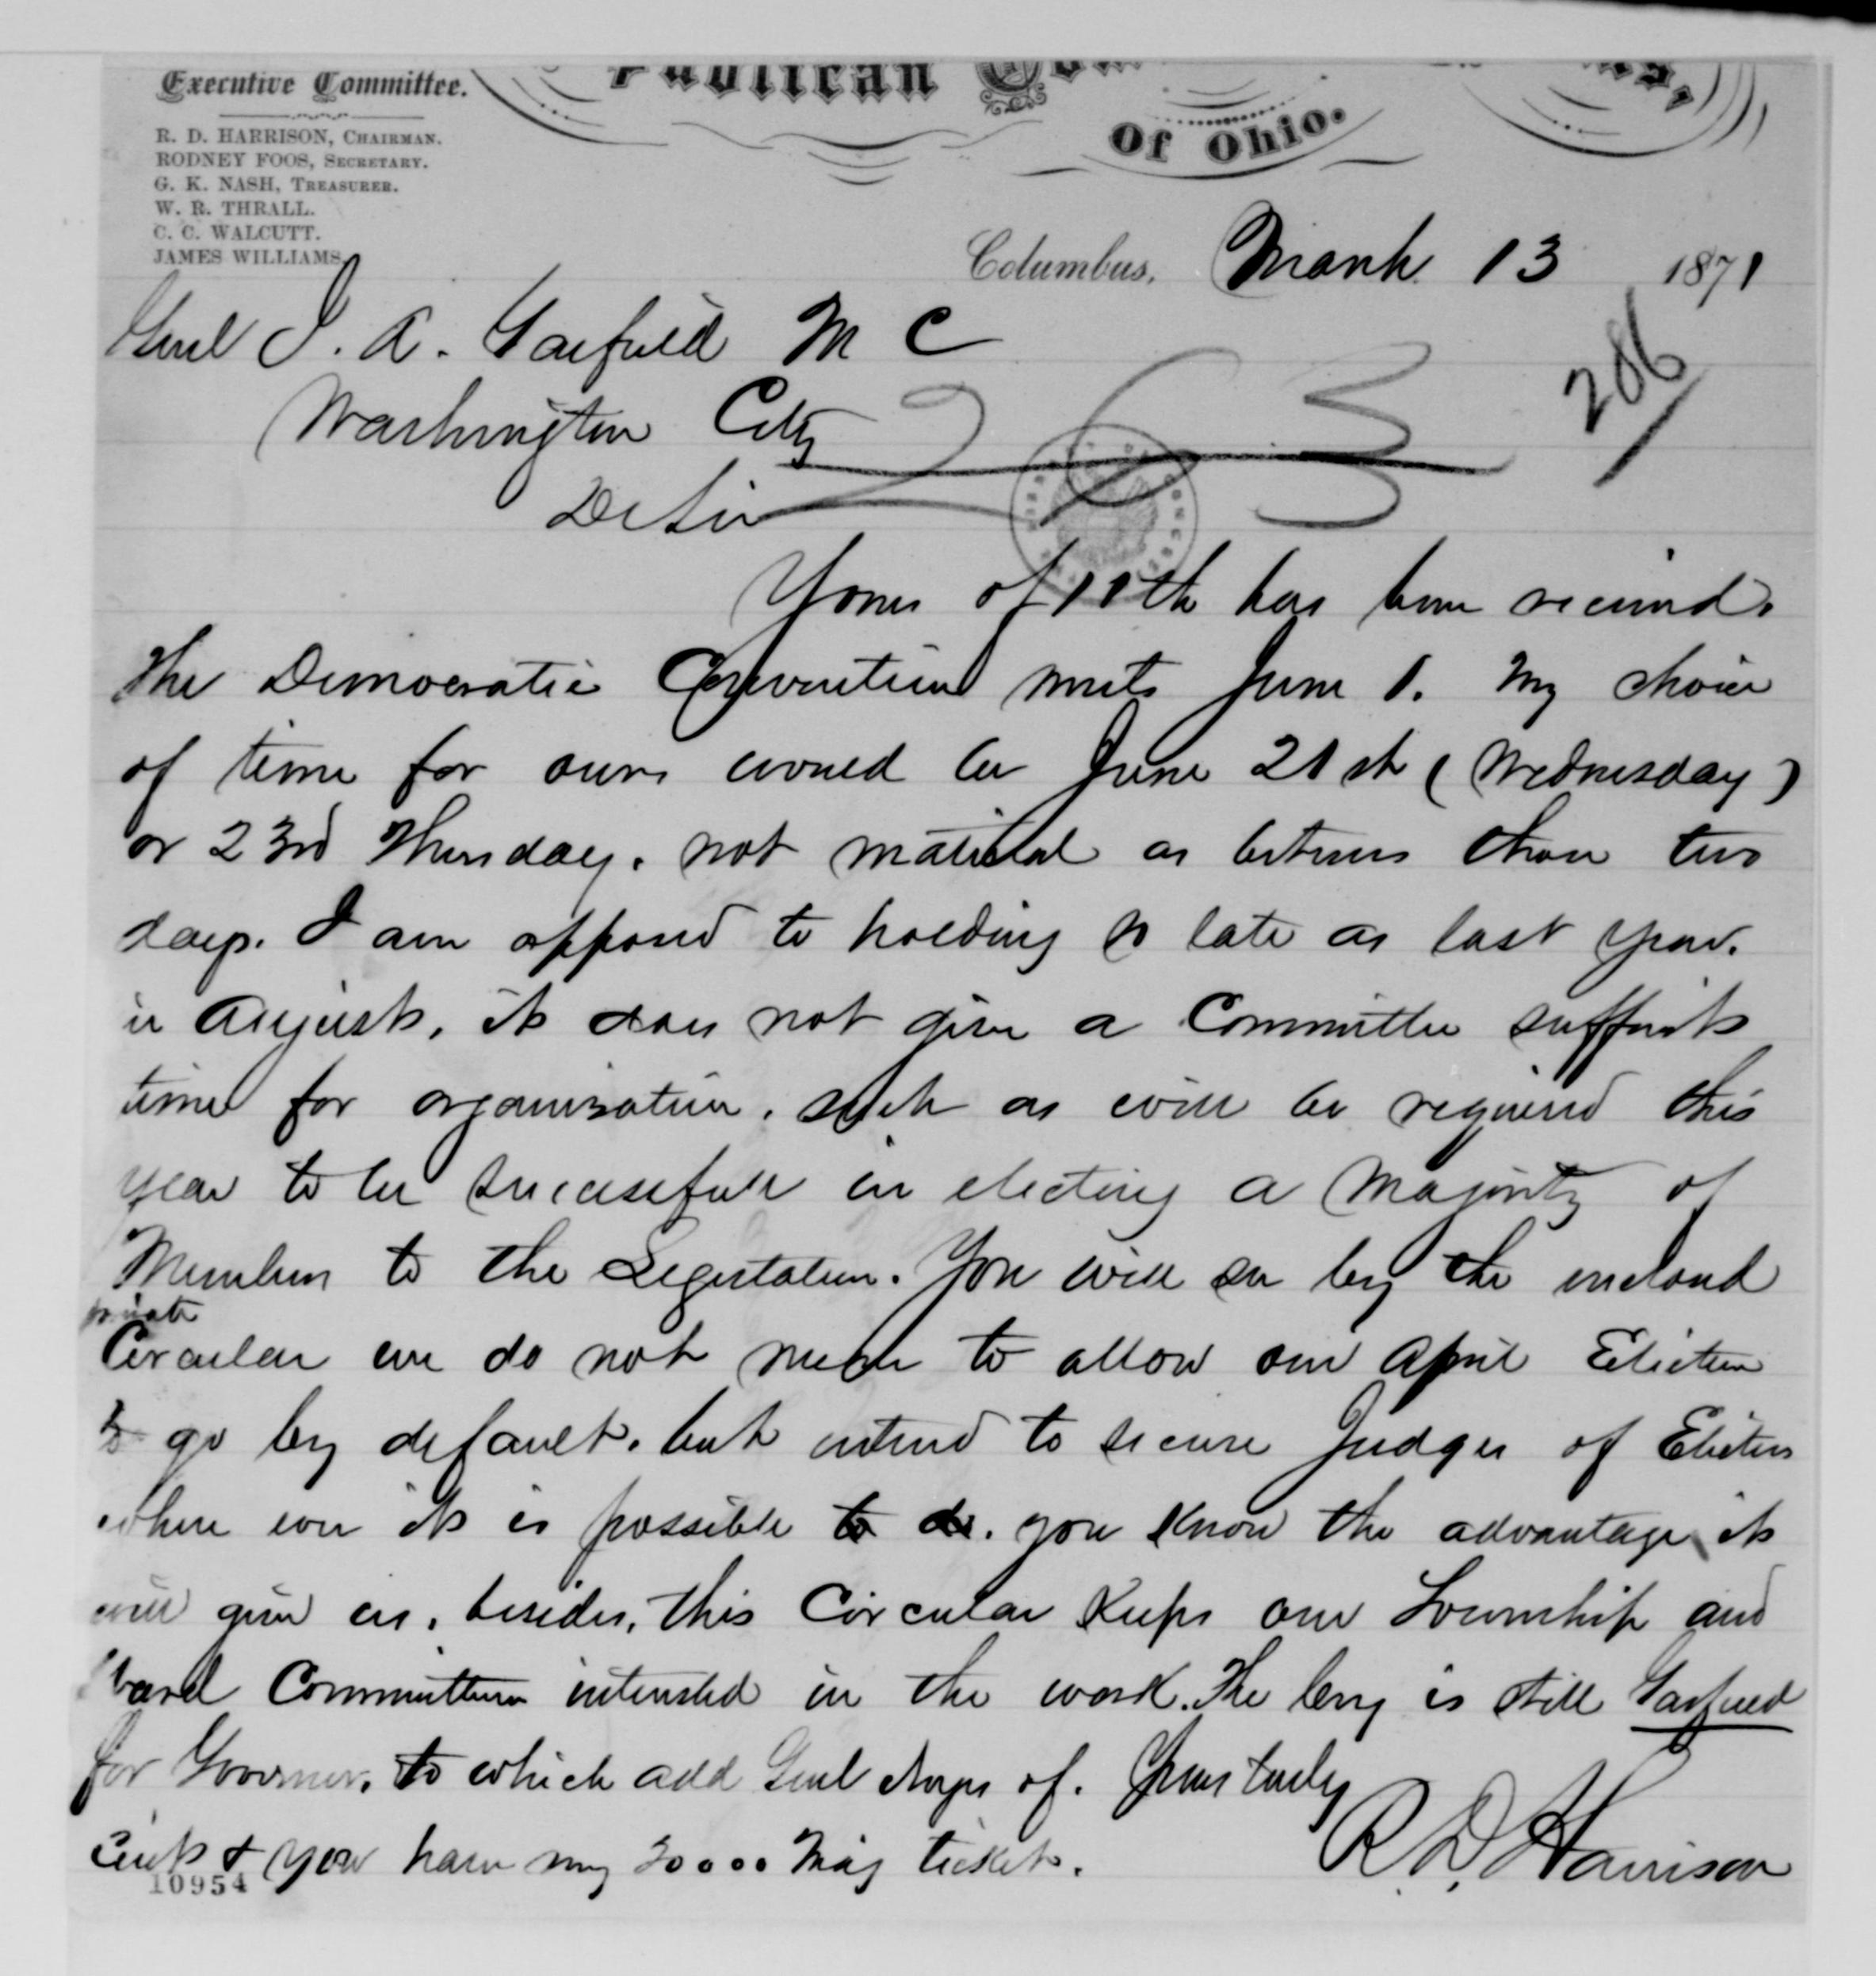 Executive Committee.
R. D. HARRISON, CHAIRMAN.
RODNEY FOOS, SECRETARY.
G. K. NASH, TREASURER.
W. R. THRALL.
C. C. WALCUTT.
JAMES WILLIAMS.
publican Com
Of Ohio.
Columbus, March 13 1871
286
Genl J. A. Garfield M C
Washington City
263
Dr Sir
Yours of 11th has been received.
The Democratic Convention meets June 1. My choice
of time for ours would be June 21st (Wednesday)
or 23rd Thursday. not material as between those two
days. I am opposed to holding so late as last year.
in August, it does not give a Committee sufficient
time for organization, such as will be required this
year to be successful in electing a Majority of
Members to the Legislature. You will see by the enclosed
private
Circular we do not mean to allow our April Election
to go by default. but intend to secure Judges of Election
where ever it is possible to do. you know the advantage it
will give us, besides, this Circular Keeps our Township and
Ward Committeemen interested in the work. The cry is still Garfield
for Governor, to which add Genl of. Yours truly
& You have my 20000 Maj ticket.
R. D. Harrison
10954